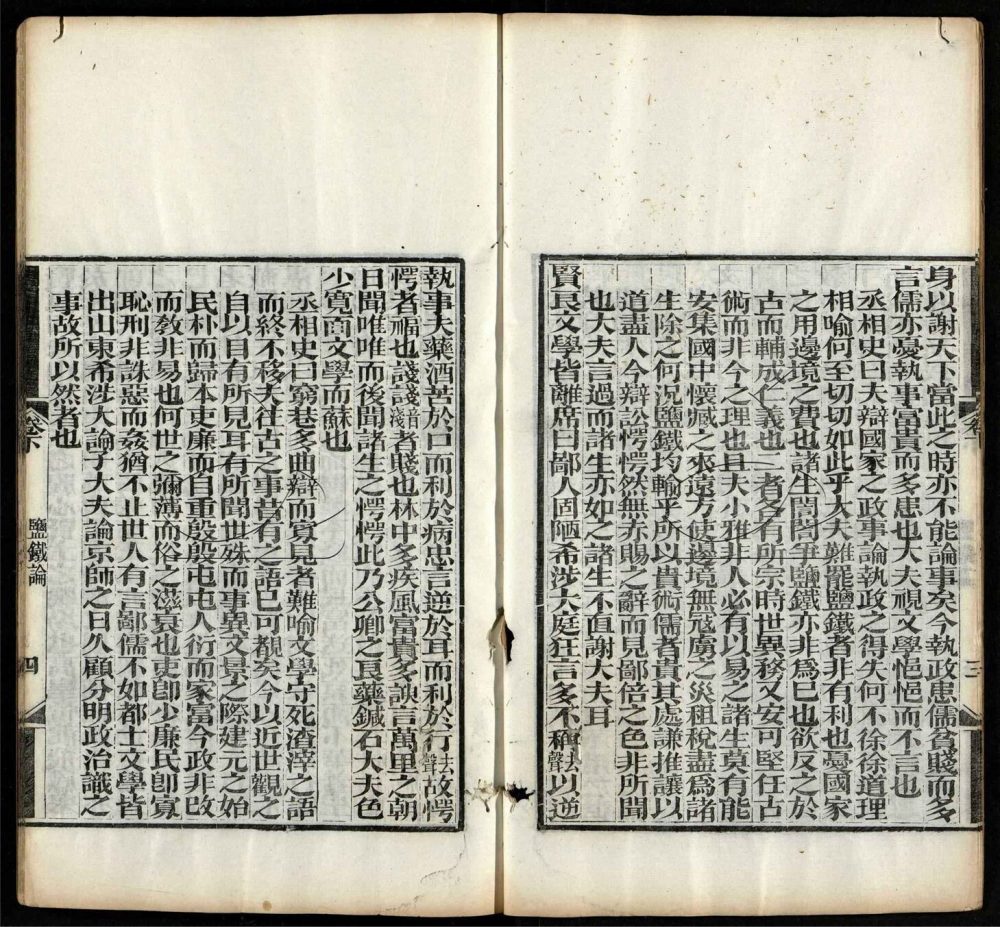 身以謝天下當此之時亦不能論事矣今執政患儒貧賤而多
言儒亦憂執事富貴而多患也大夫視文學悒悒而不言也
丞相史曰夫辯國家之政事論執政之得失何不徐徐道理
相喻何至切切如此乎大夫難罷鹽鐵者非有利也憂國家
之用邊境之費也諸生誾誾爭鹽鐵亦非爲己也欲反之於
古而輔成仁義也二者各有所宗時世異務又安可堅任古
術而非今之理也且夫小雅非人必有以易之諸生莫有能
安集國中懷臧之來遠方使邊境無冦虜之災租稅盡爲諸
生除之何況鹽鐵均輸乎所以貴術儒者貴其處謙推讓以
道盡人今辯訟愕愕然無赤賜之辭而見鄙倍之色非所聞
也大夫言過而諸生亦如之諸生不直謝大夫耳
賢良文學皆離席曰鄙人固陋希涉大庭狂言多不稱去聲以逆
執事夫藥酒苦於口而利於病忠言逆於耳而利於行去聲故愕
愕者福也諓諓音淺者賤也林中多疾風富貴多諛言萬里之朝
日聞唯唯而後聞諸生之愕愕此乃公卿之良藥鍼石大夫色
少寬面文學而蘇也
丞相史曰窮巷多曲辯而寡見者難喻文學守死渣滓之語
而終不移夫往古之事昔有之語已可覩矣今以近世觀之
自以目有所見耳有所聞世殊而事異文景之際建元之始
民朴而歸本吏廉而自重殷殷屯屯人衍而家富今政非改
而敎非易也何世之彌薄而俗之滋衰也吏卽少廉民卽寡
恥刑非誅惡而姦猶不止世人有言鄙儒不如都士文學皆
出山東希涉大論子大夫論京師之日久顧分明政治識之
事故所以然者也
卷下
鹽鐵論
四
三